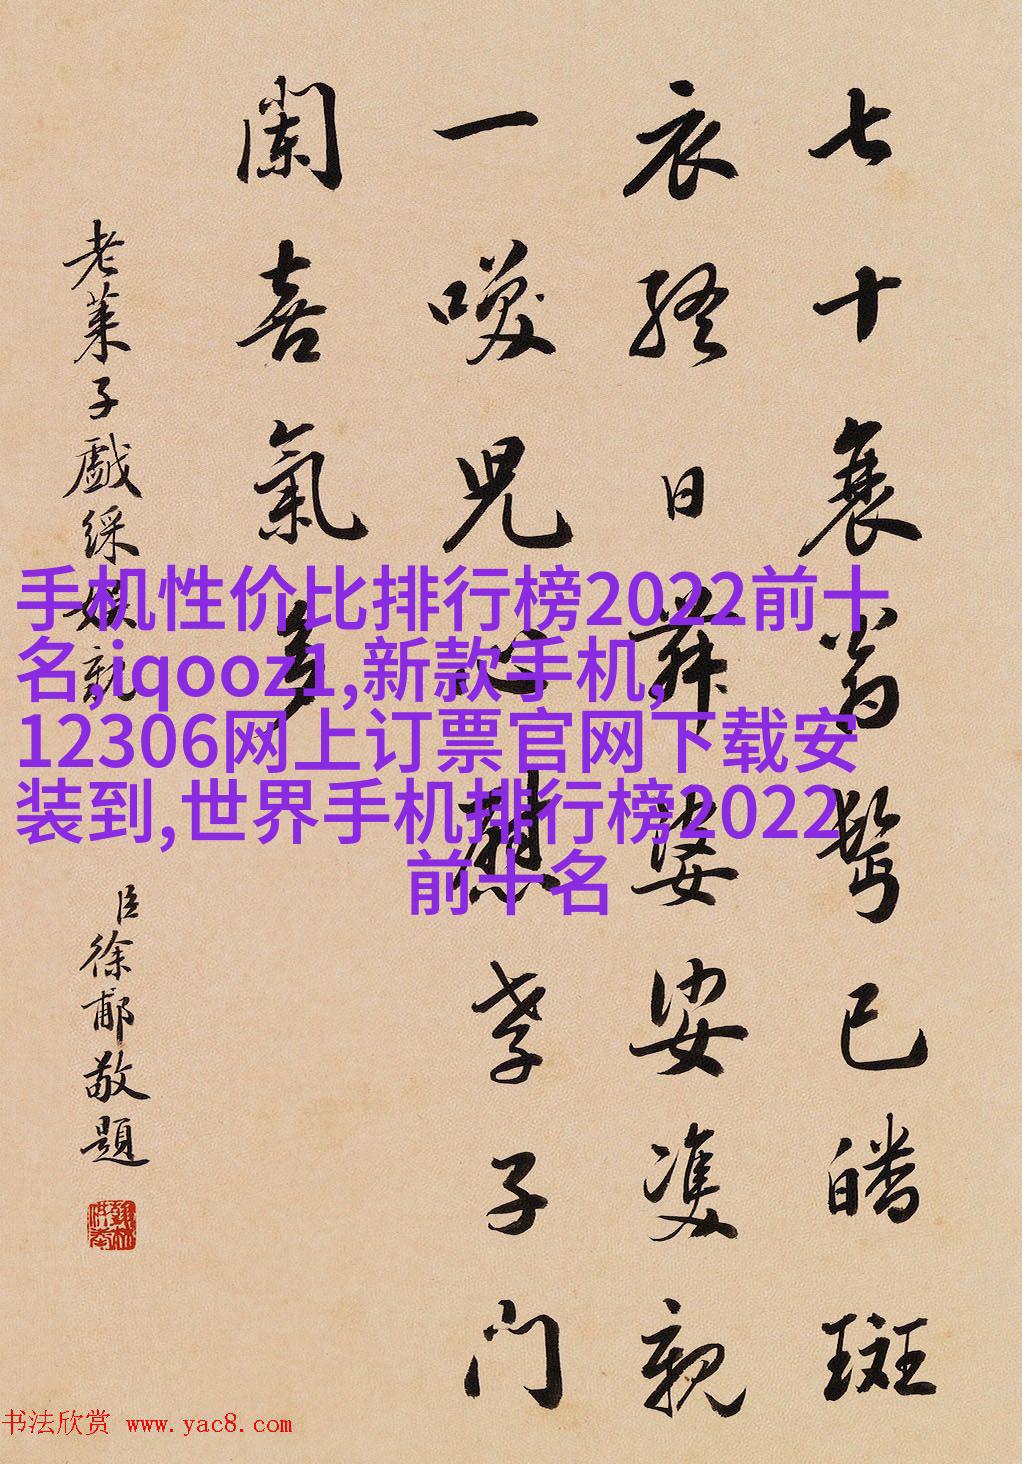 七十衰翁鬓已皤斑
衣终日舞婆娑双亲
一唤儿心慰孝子门
阑喜氣多
老莱子戯綵娱親
臣徐郙敬題
手机性价比排行榜2022前十
名,iqooz1,新款手机,
12306网上订票官网下载安
装到,世界手机排行榜2022
前十名
书法欣赏 www.yac8.com